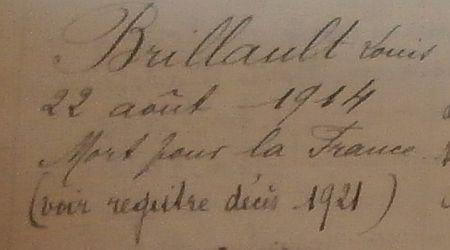 Brillault Louis
22 août 1914
Mort pour la France
(voir registre décès 1921)